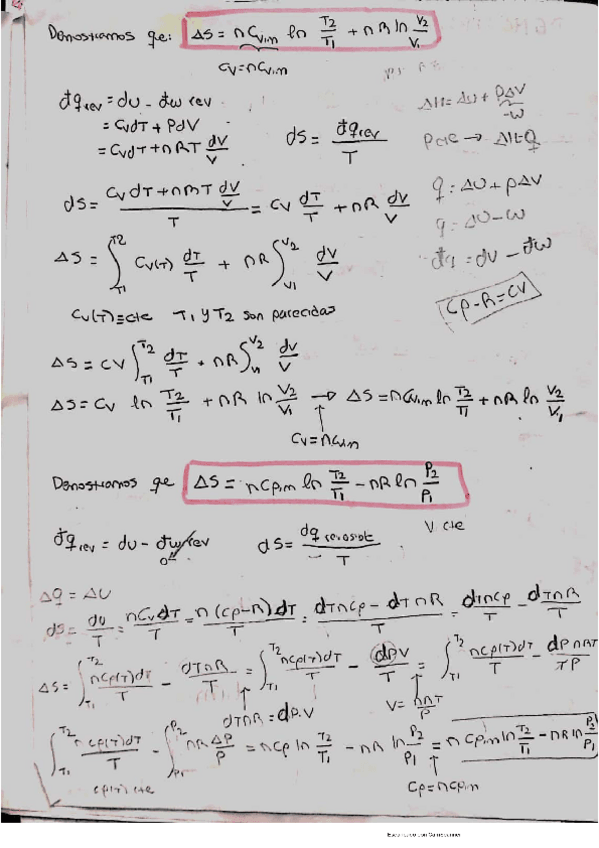 Demostramos que: ΔS = n Cv,m ln T2/T1 + nR ln V2/V1
Cv = nCv,m
đq rev = dU - đw rev
= CvdT + PdV
= CvdT + nRT dV/V
dS = đq rev / T
ΔH = ΔU + PΔV
-w
P cte → ΔH = Q
q = ΔU + pΔV
q = ΔU - w
đq = dU - đw
Cp - R = Cv
dS = (Cv dT + nRT dV/V) / T = Cv dT/T + nR dV/V
ΔS = ∫T1T2 Cv(T) dT/T + nR ∫V1V2 dV/V
Cv(T) ≡ cte T1 y T2 son parecidas
ΔS = Cv ∫T1T2 dT/T + nR ∫V1V2 dV/V
ΔS = Cv ln T2/T1 + nR ln V2/V1 → ΔS = nCv,m ln T2/T1 + nR ln V2/V1
Cv = nCv,m
Demostramos que ΔS = nCp,m ln T2/T1 - nR ln P2/P1
V cte
đq rev = dU - đw rev
0
dS = dq / T
Δq = ΔU
dS = dU/T = nCvdT/T = n(Cp-R)dT/T = (dTnCp - dTnR)/T = dTnCp/T - dTnR/T
ΔS = ∫T1T2 nCp(T)dT/T - dTnR/T = ∫T1T2 nCp(T)dT/T - dPV/T = ∫T1T2 nCp(T)dT/T - dP nRT/TP
dTnR = dP.V
V = nRT/P
∫T1T2 nCp(T)dT/T - ∫P1P2 nR ΔP/P = nCp ln T2/T1 - nR ln P2/P1 = nCp,m ln T2/T1 - nR ln P2/P1
Cp(T) cte
Cp = nCp,m
Escaneado con CamScanner